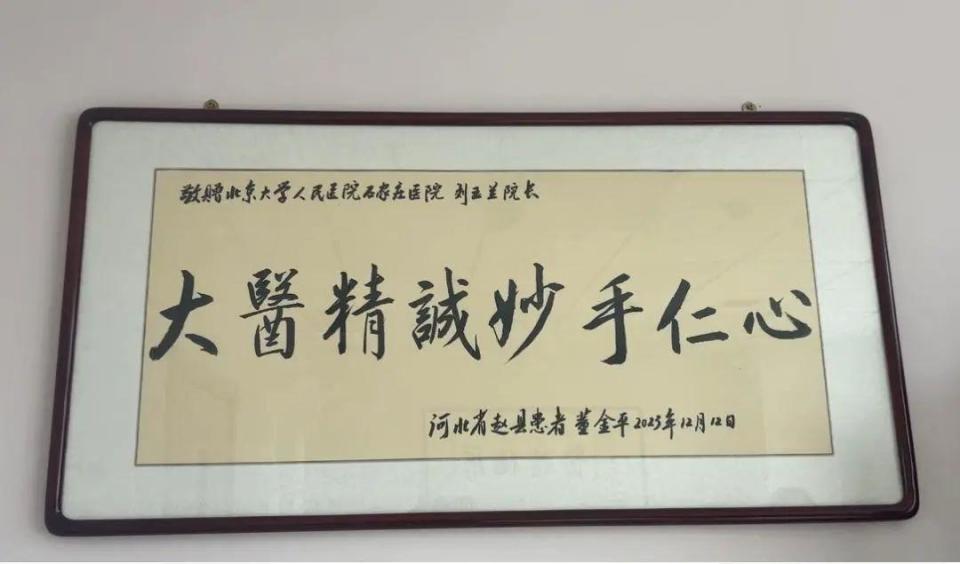 敬赠北京大学人民医院石家庄医院 刘玉兰院长
大醫精誠妙手仁心
河北省赵县患者 董金平 2025年12月12日